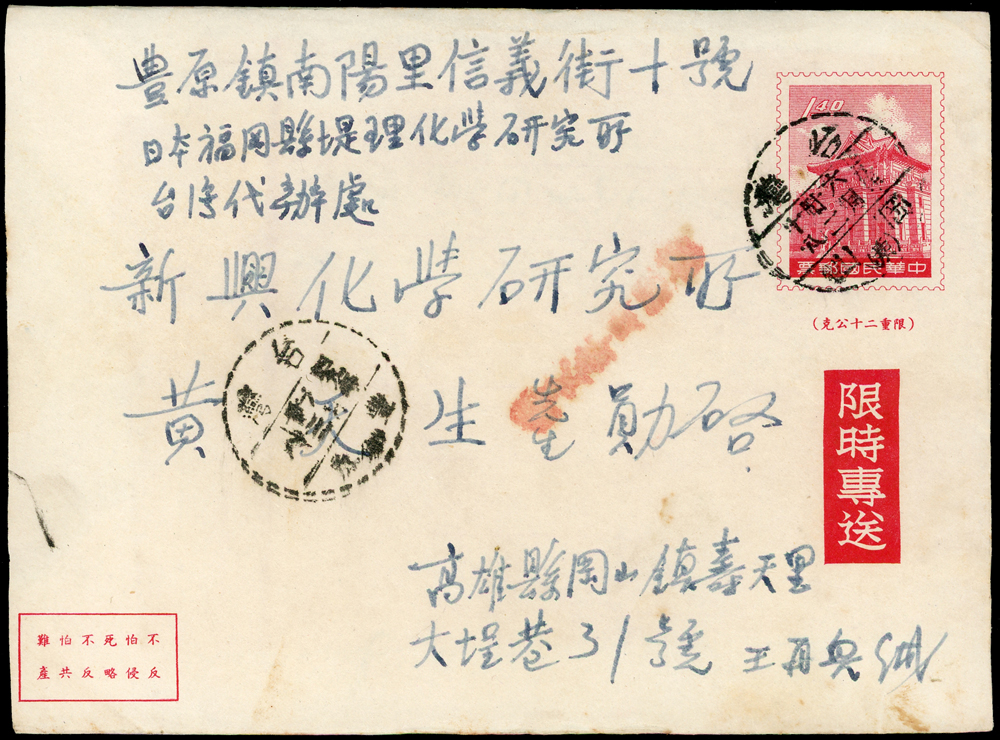 豊原鎮南陽里信義街十號
日本福岡縣堤理化學研究所
台湾代辦處
新興化學研究所
黃文生先生勛啓
1.40
中華民國郵票
(限重二十公克)
限時專送
高雄縣岡山鎮壽天里
大埕巷31號 王再興緘
不怕死不怕難
反侵略反共產
台灣
台灣